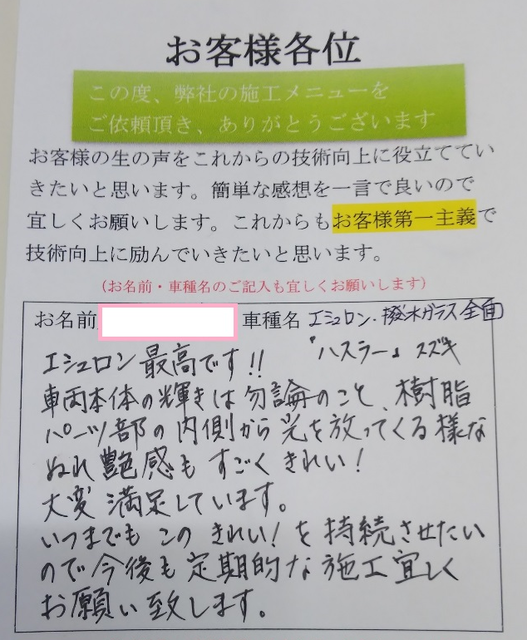 お客様各位
この度、弊社の施工メニューを
ご依頼頂き、ありがとうございます
お客様の生の声をこれからの技術向上に役立ててい
きたいと思います。簡単な感想を一言で良いので
宜しくお願いします。これからもお客様第一主義で
技術向上に励んでいきたいと思います。
(お名前・車種名のご記入も宜しくお願いします)
お名前 車種名 エシュロン・撥水ガラス全面
『ハスラー』スズキ
エシュロン最高です!!
車両本体の輝きは勿論のこと、樹脂
パーツ部の内側から光を放ってくる様な
ぬれ艶感もすごくきれい!
大変満足しています。
いつまでもこのきれい!を持続させたい
ので今後も定期的な施工宜しく
お願い致します。